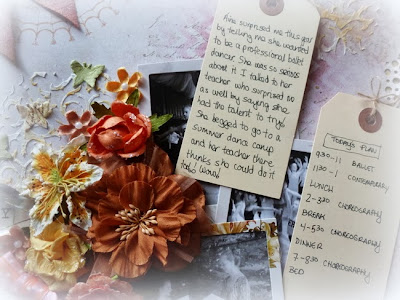 Ana surprised me this year
by telling me she wanted
to be a professional ballet
dancer. She was so serious
about it I talked to her
teacher who surprised me
as well by saying she
had the talent to try!
She begged to go to a
summer dance camp
and her teacher there
thinks she could do it
too! Wow!
TODAY'S PLAN
9.30-11 BALLET
11.30-1 CONTEMPORARY
LUNCH
2-3.30 CHOREOGRAPHY
BREAK
4-5.30 CHOREOGRAPHY
DINNER
7-8.30 CHOREOGRAPHY
BED